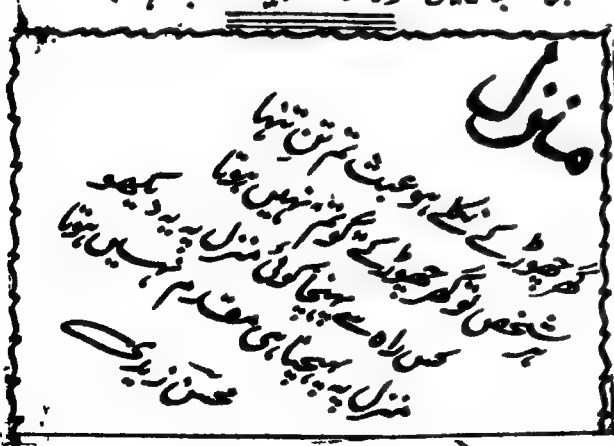 منزل
گھر چھوڑ کے نکلے ہو عبث تم تنِ تنہا
ہر شخص تو گھر چھوڑ کے گوتم نہیں ہوتا
کس راہ سے پہنچا کوئی منزل پہ یہ دیکھو
منزل پہ پہنچنا ہی مقدم نہیں ہوتا
محسن زیدی